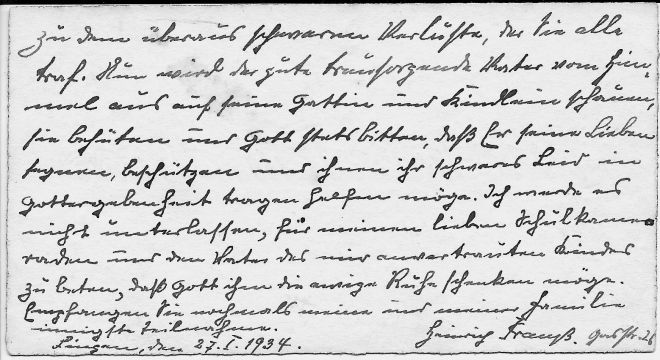 zu dem überaus schweren Verluste, der Sie alle
traf. Nun wird der gute treusorgende Vater vom Him-
mel aus auf seine Gattin und Kindlein schauen,
sie behüten und Gott stets bitten, daß Er seine Lieben
segnen, beschützen und ihnen ihr schweres Leid in
Gottergebenheit tragen helfen möge. Ich werde es
nicht unterlassen, für meinen lieben Schulkame-
raden und den Vater des mir anvertrauten Kindes
zu beten, daß Gott ihm die ewige Ruhe schenken möge.
Empfangen Sie nochmals meine und meiner Familie
innigste Teilnahme.
Heinrich
den 27. I. 1934.